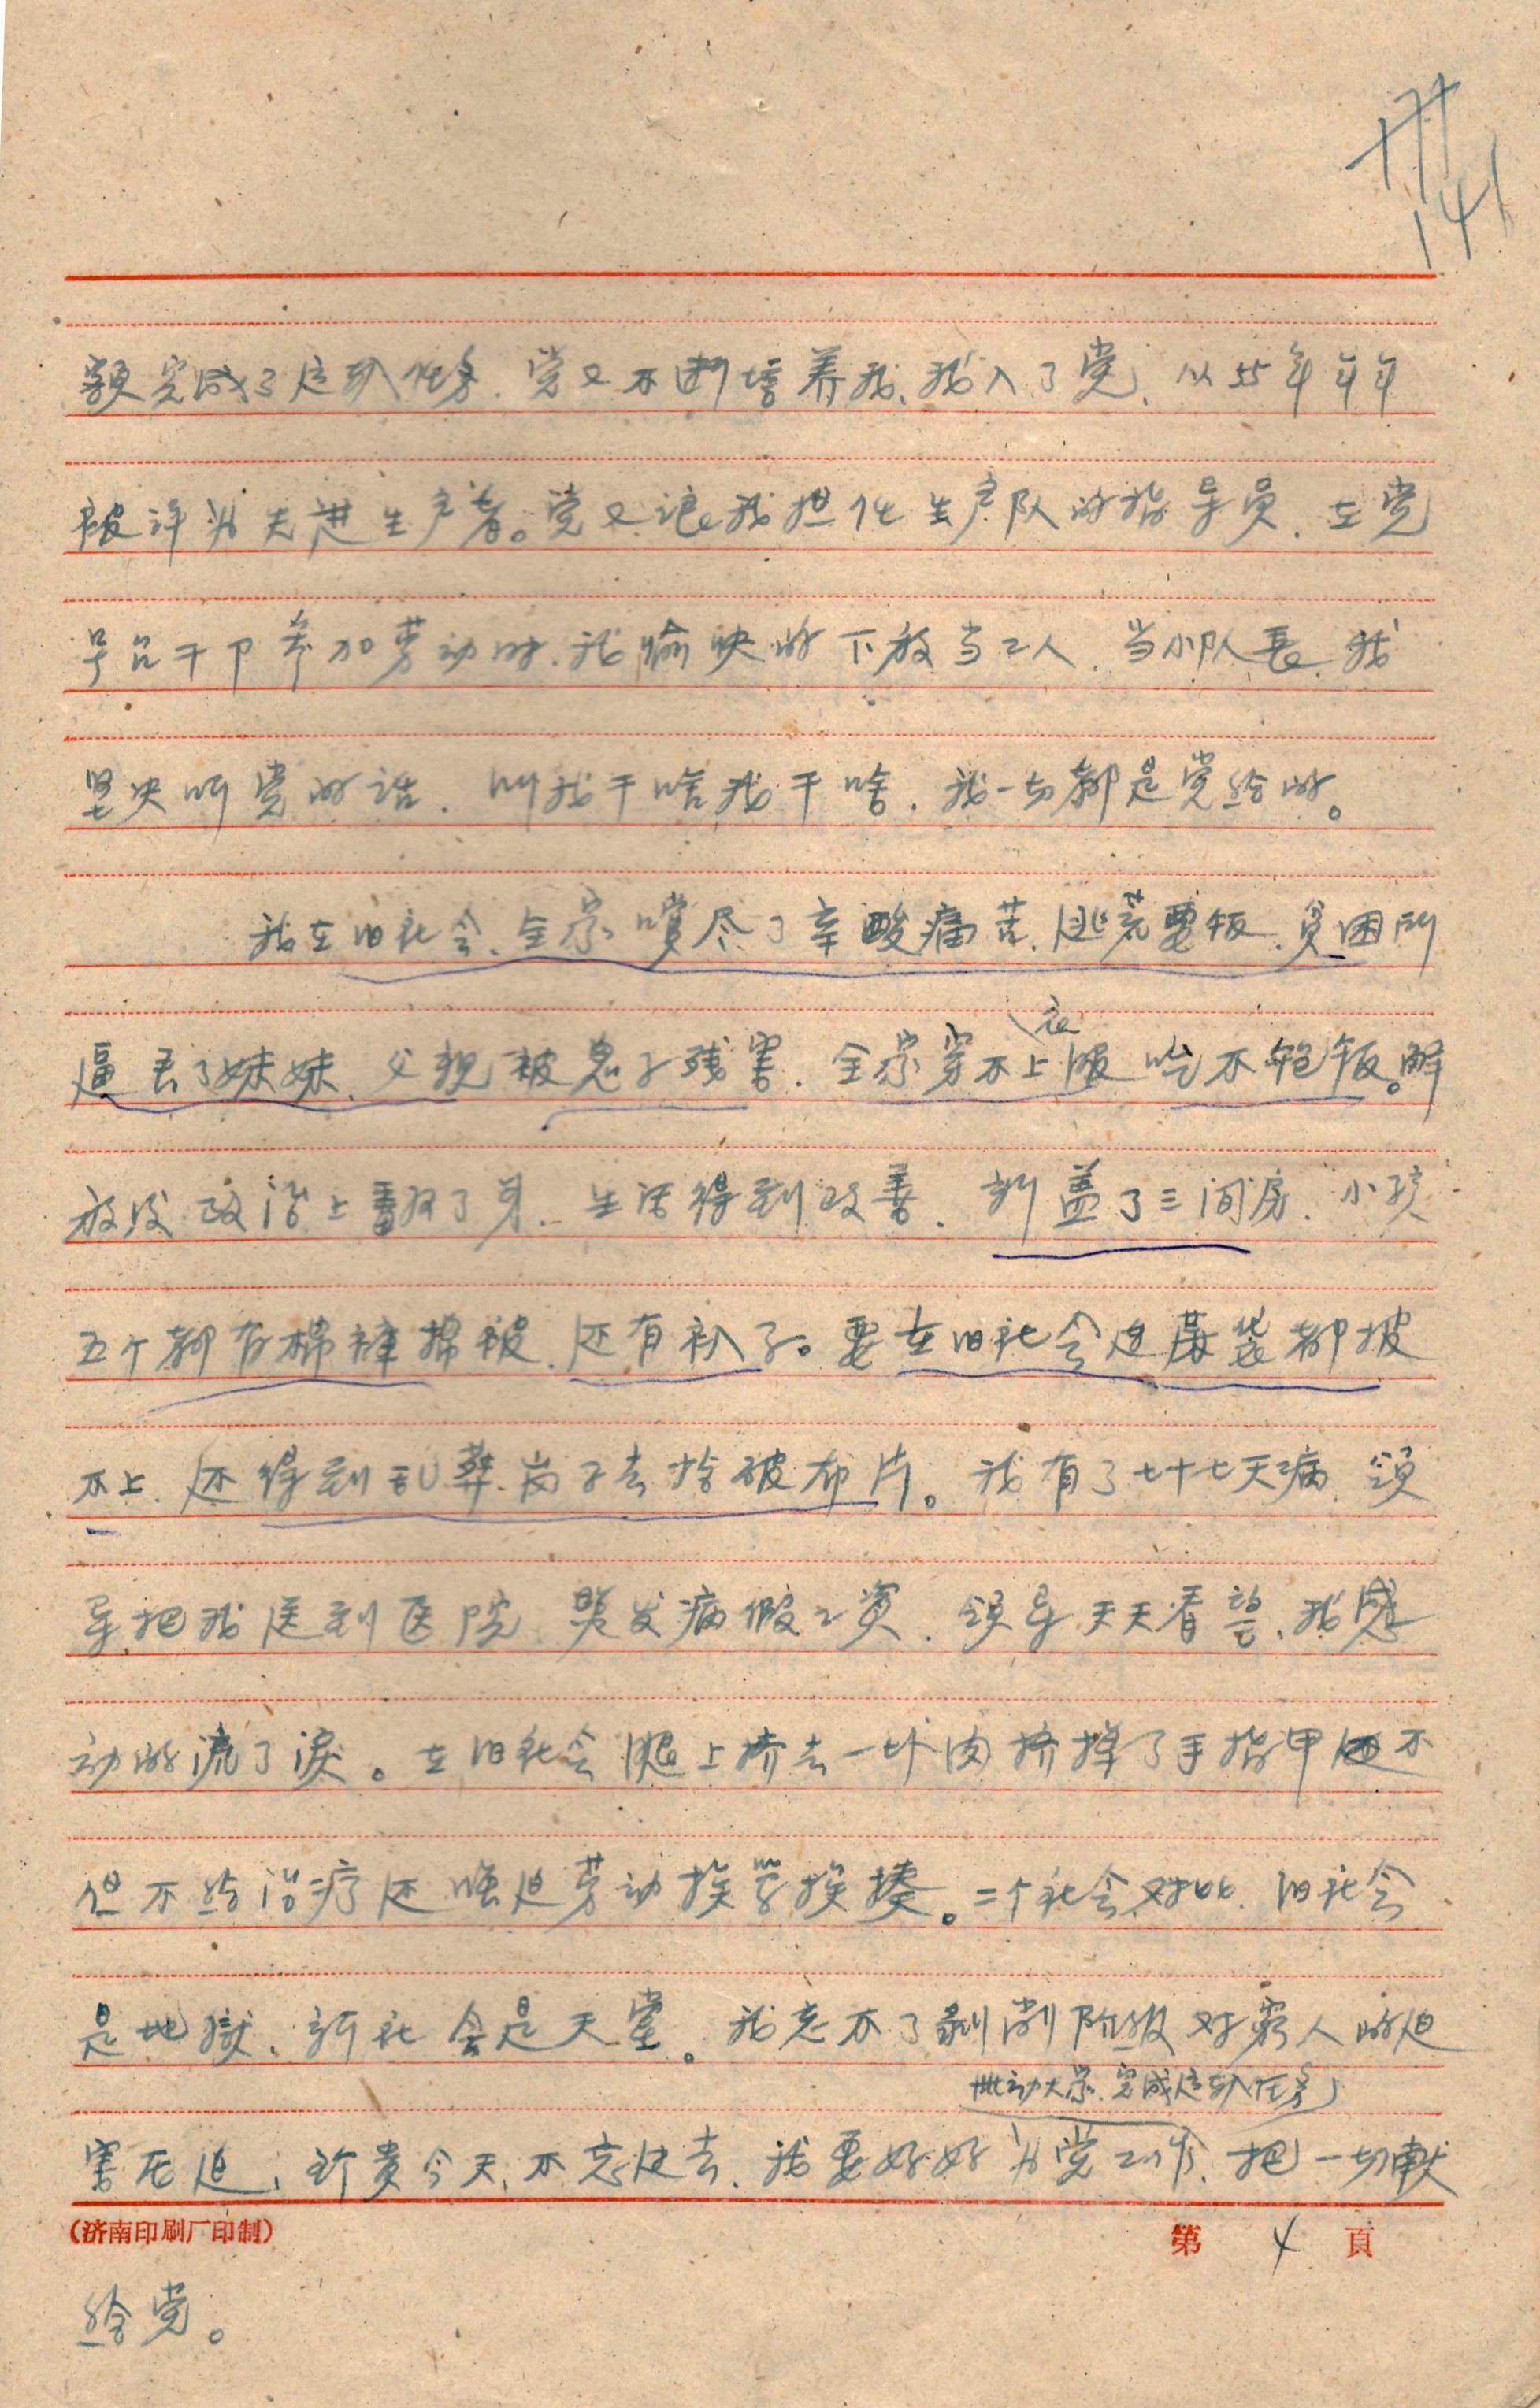 141
额完成了运输任务.党又不断培养我、我入了党、从55年年年
被评为先进生产者。党又让我担任生产队的指导员、在党
号召干卩参加劳动时、我愉快的下放当工人、当小队长、我
坚决听党的话、叫我干啥我干啥、我一切都是党给的。
我在旧社会、全家嚐尽了辛酸痛苦、逃荒要饭、贫困所
逼丢了妹妹、父親被鬼子残害、全家穿不上衣服吃不饱饭。解
放后政治上翻了身、生活得到改善、新盖了三间房、小孩
五个都有棉裤棉被、还有袄子。要在旧社会连蔴袋都披
不上、还得到乱葬岗子去拾破布片。我有了七十七天病、领
导把我送到医院、照发病假工资、领导天天看望、我感
动的流了泪。在旧社会腿上挤去一块肉挤掉了手指甲还不
但不给治疗还强迫劳动挨骂挨揍。二个社会对比、旧社会
是地獄、新社会是天堂。我忘不了剥削阶级对穷人的迫
带动大家、完成运输任务
害压迫、珍贵今天、不忘过去、我要好好为党工作、把一切献
(济南印刷厂印制)
第 4 頁
给党。